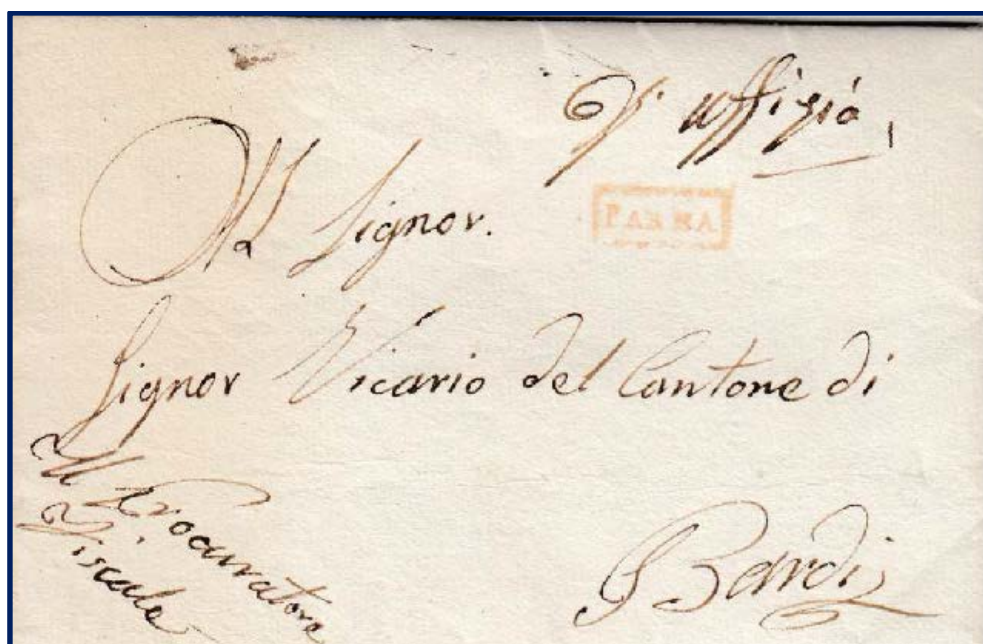 d'uffizio
Al Signor.
PARMA
Signor Vicario del Cantone di
Il Procuratore
Fiscale
Bardi